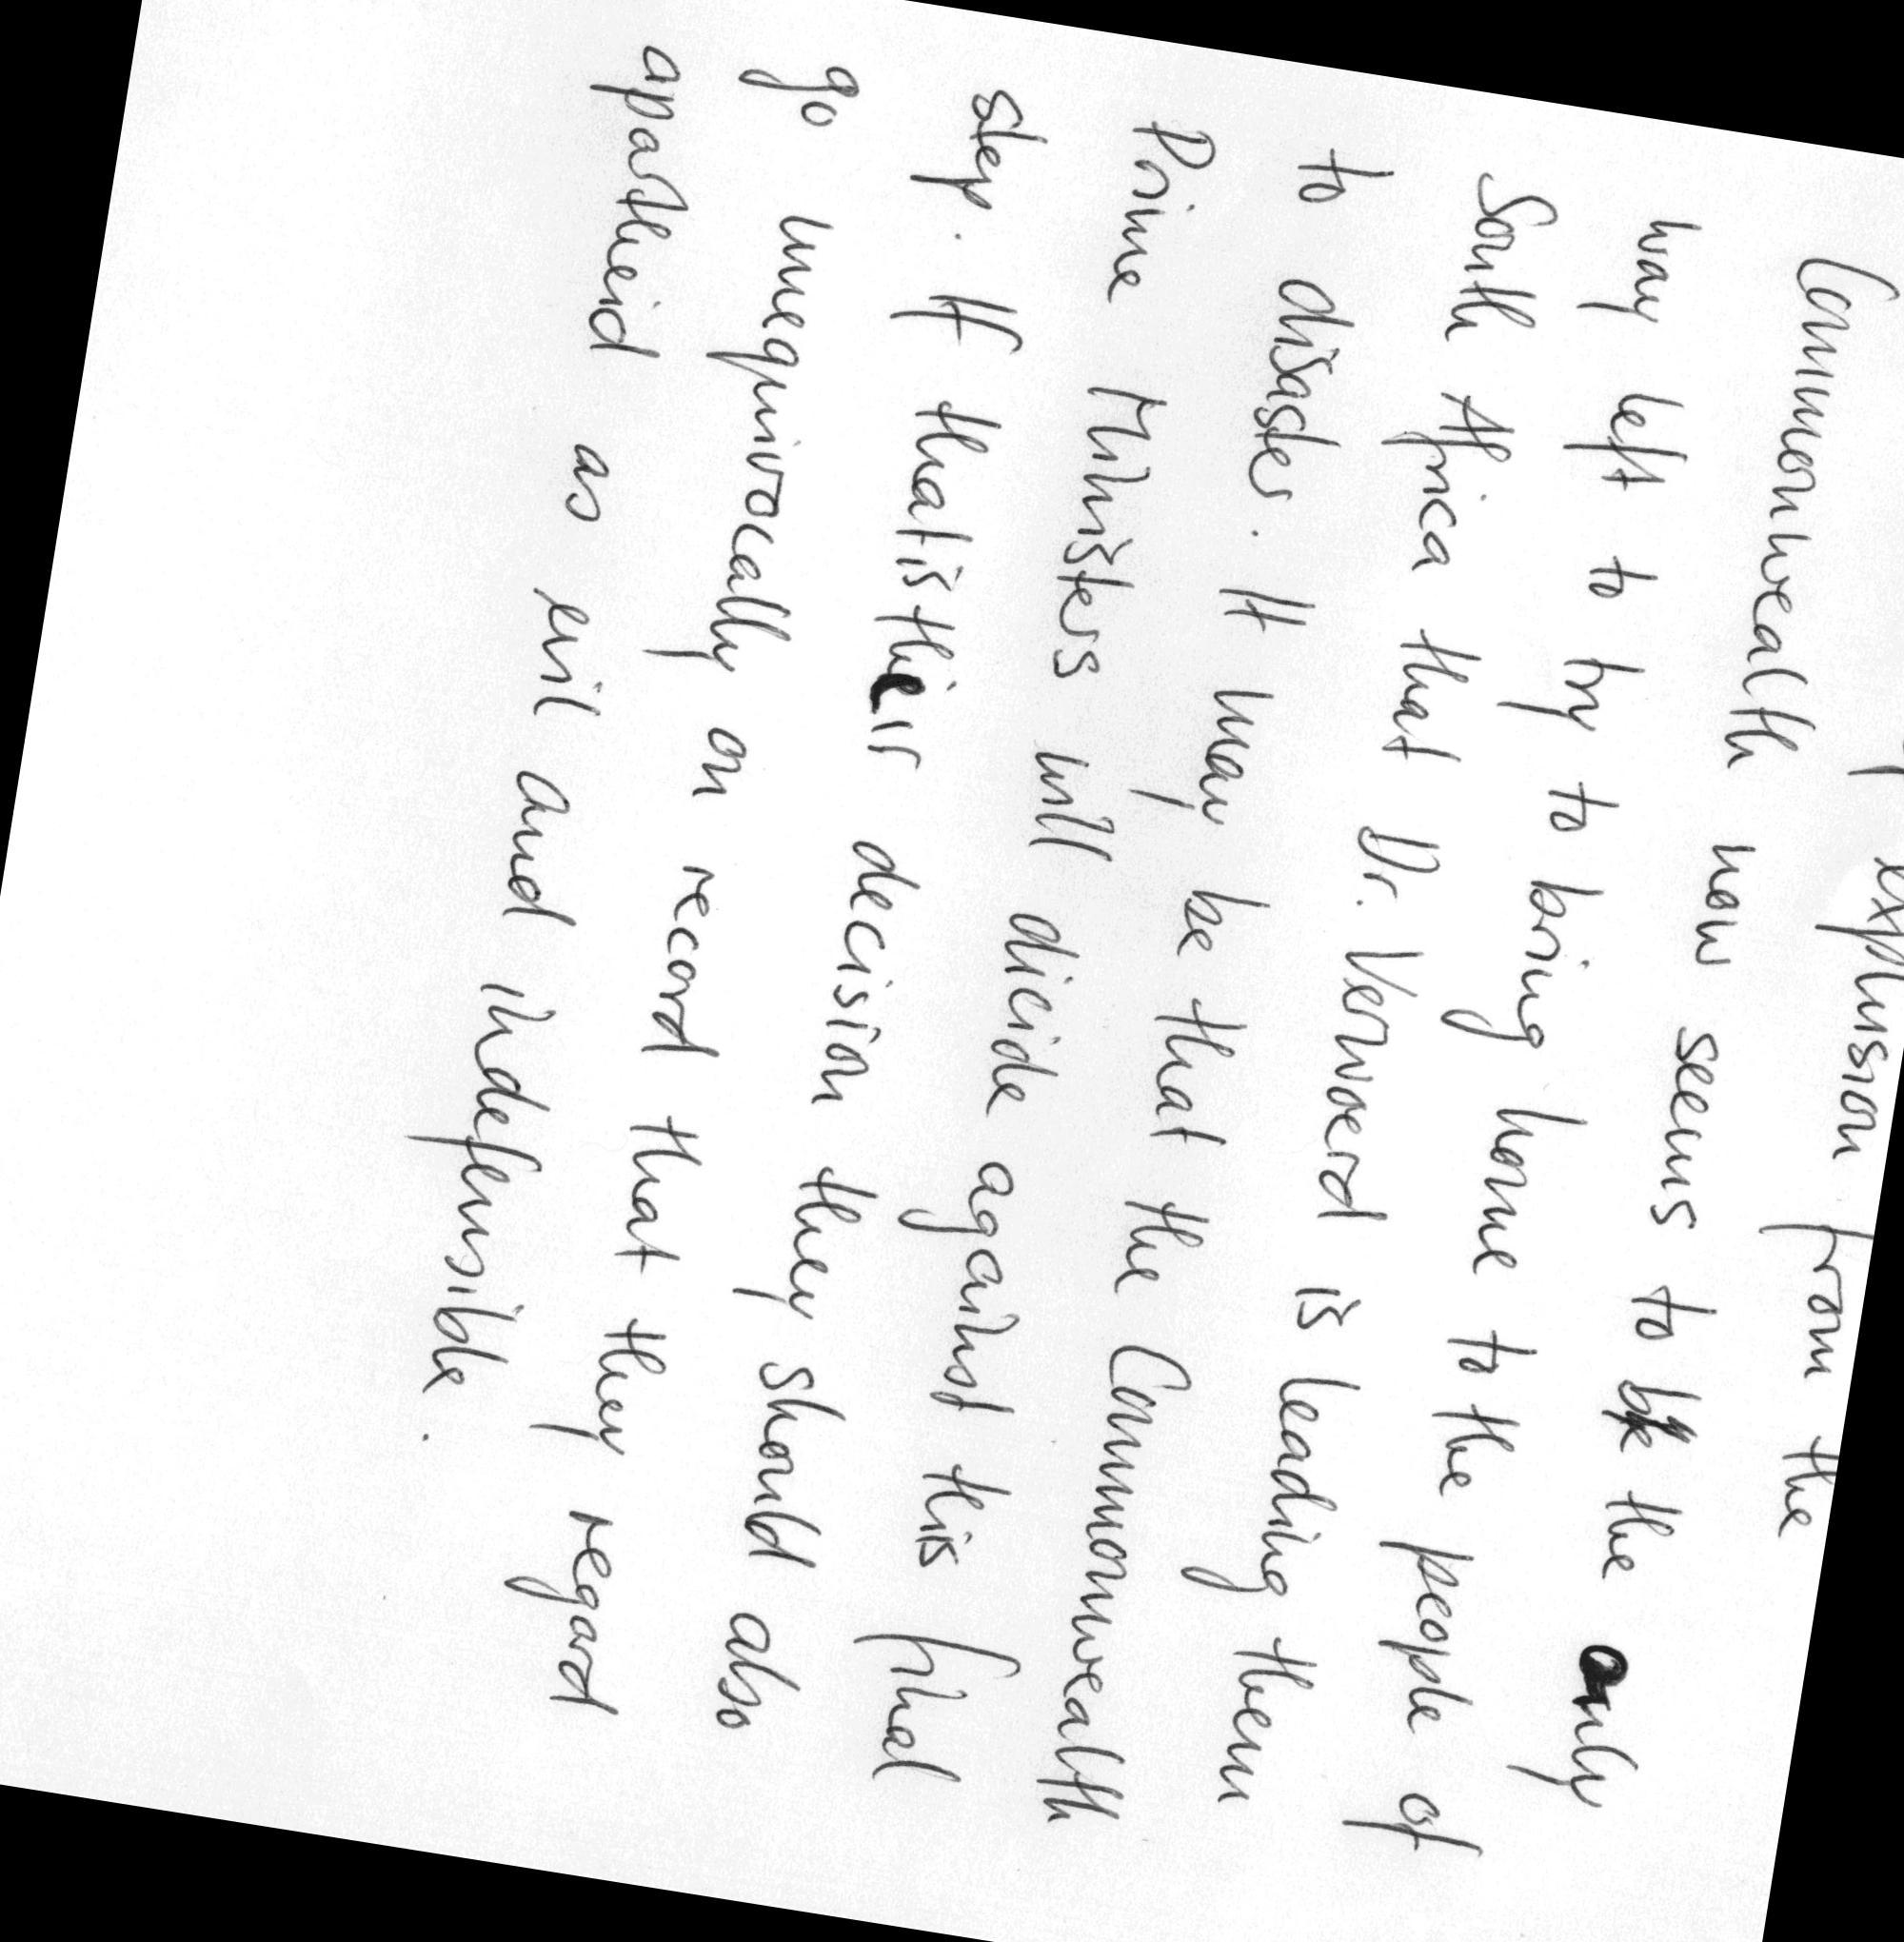 explusion from the
Commonwealth now seems to be the only
way left to try to bring home to the people of
South Africa that Dr. Verwoerd is leading them
to disaster. It may be that the Commonwealth
Prime Ministers will dicide against this final
step. If that is their decision they should also
go unequivocally on record that they regard
apartheid as evil and indefensible.